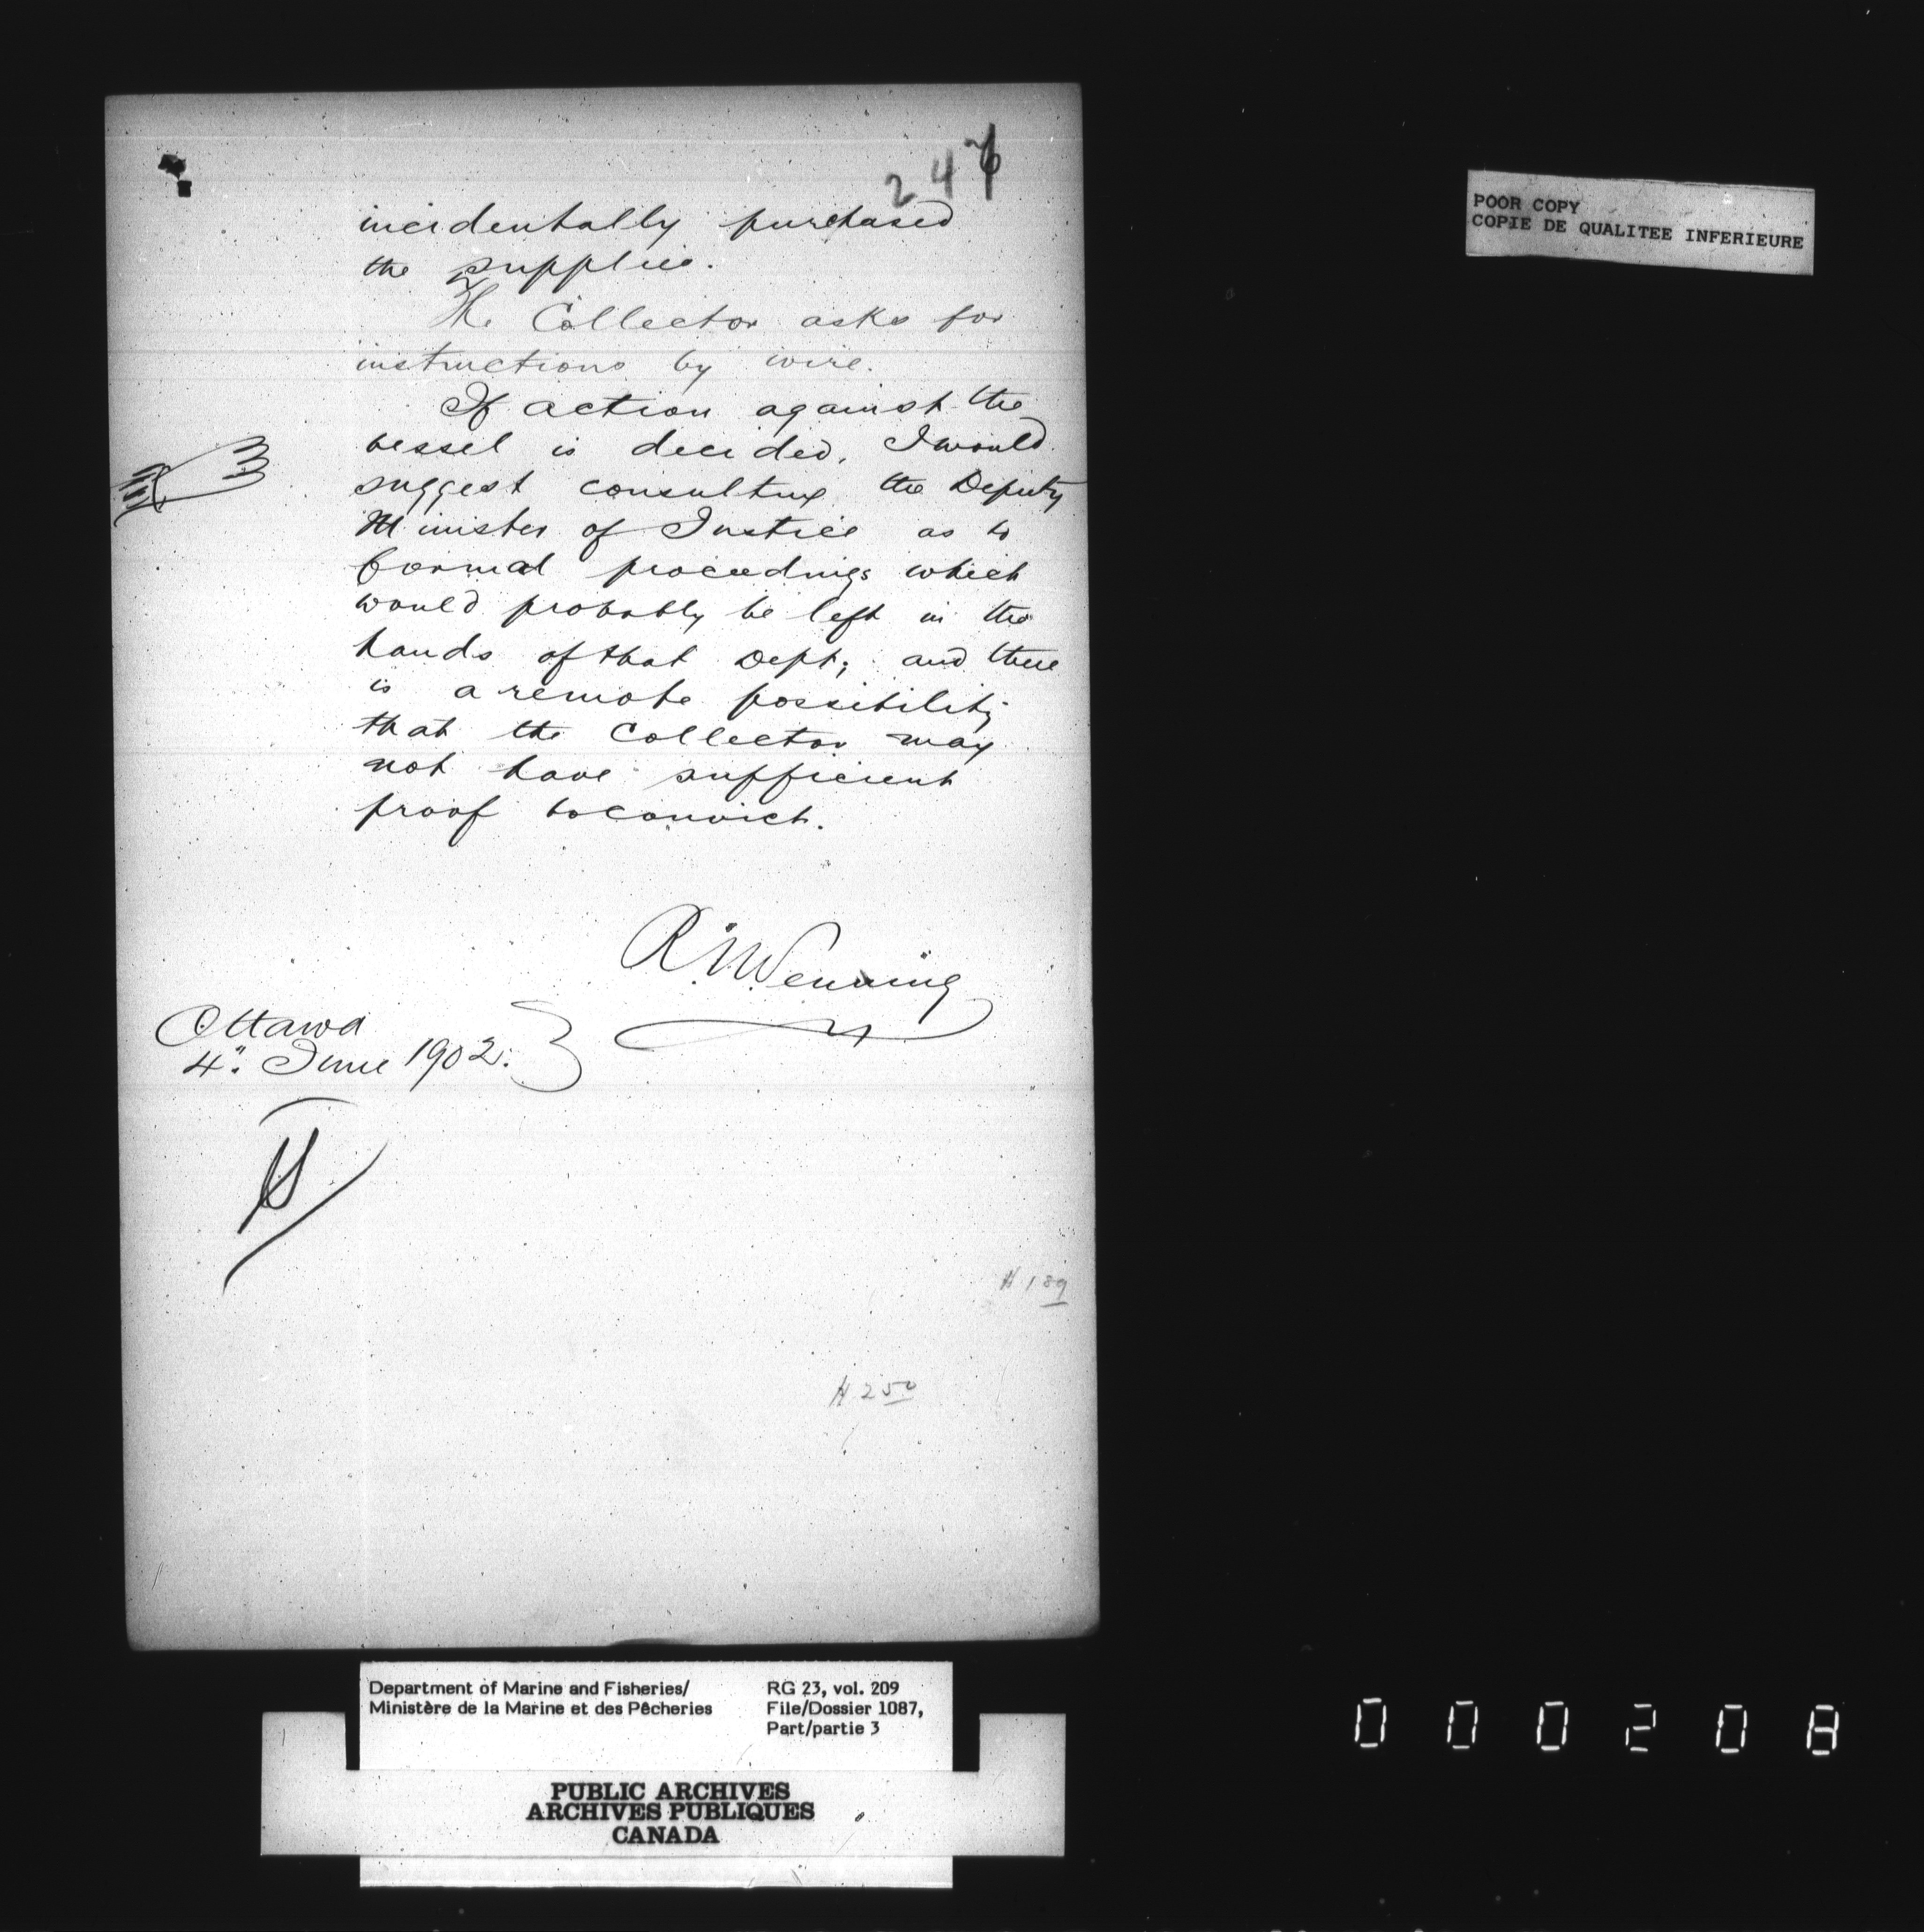 247
incidentally purchased
the supplies.
The Collector asks for
instructions by wire.
If action against the
vessel is decided, I would
suggest consulting the Deputy
Minister of Justice as to
formal proceedings which
would probably be left in the
hands of that Dept; and there
is a remote possibility
that the Collector may
not have sufficient
proof to convict.
R.N. Venning
Ottawa
4" June 1902.
H 189
H 250
POOR COPY
COPIE DE QUALITEE INFERIEURE
Department of Marine and Fisheries/
Ministère de la Marine et des Pêcheries
RG 23, vol. 209
File/Dossier 1087,
Part/partie 3
PUBLIC ARCHIVES
ARCHIVES PUBLIQUES
CANADA
000208